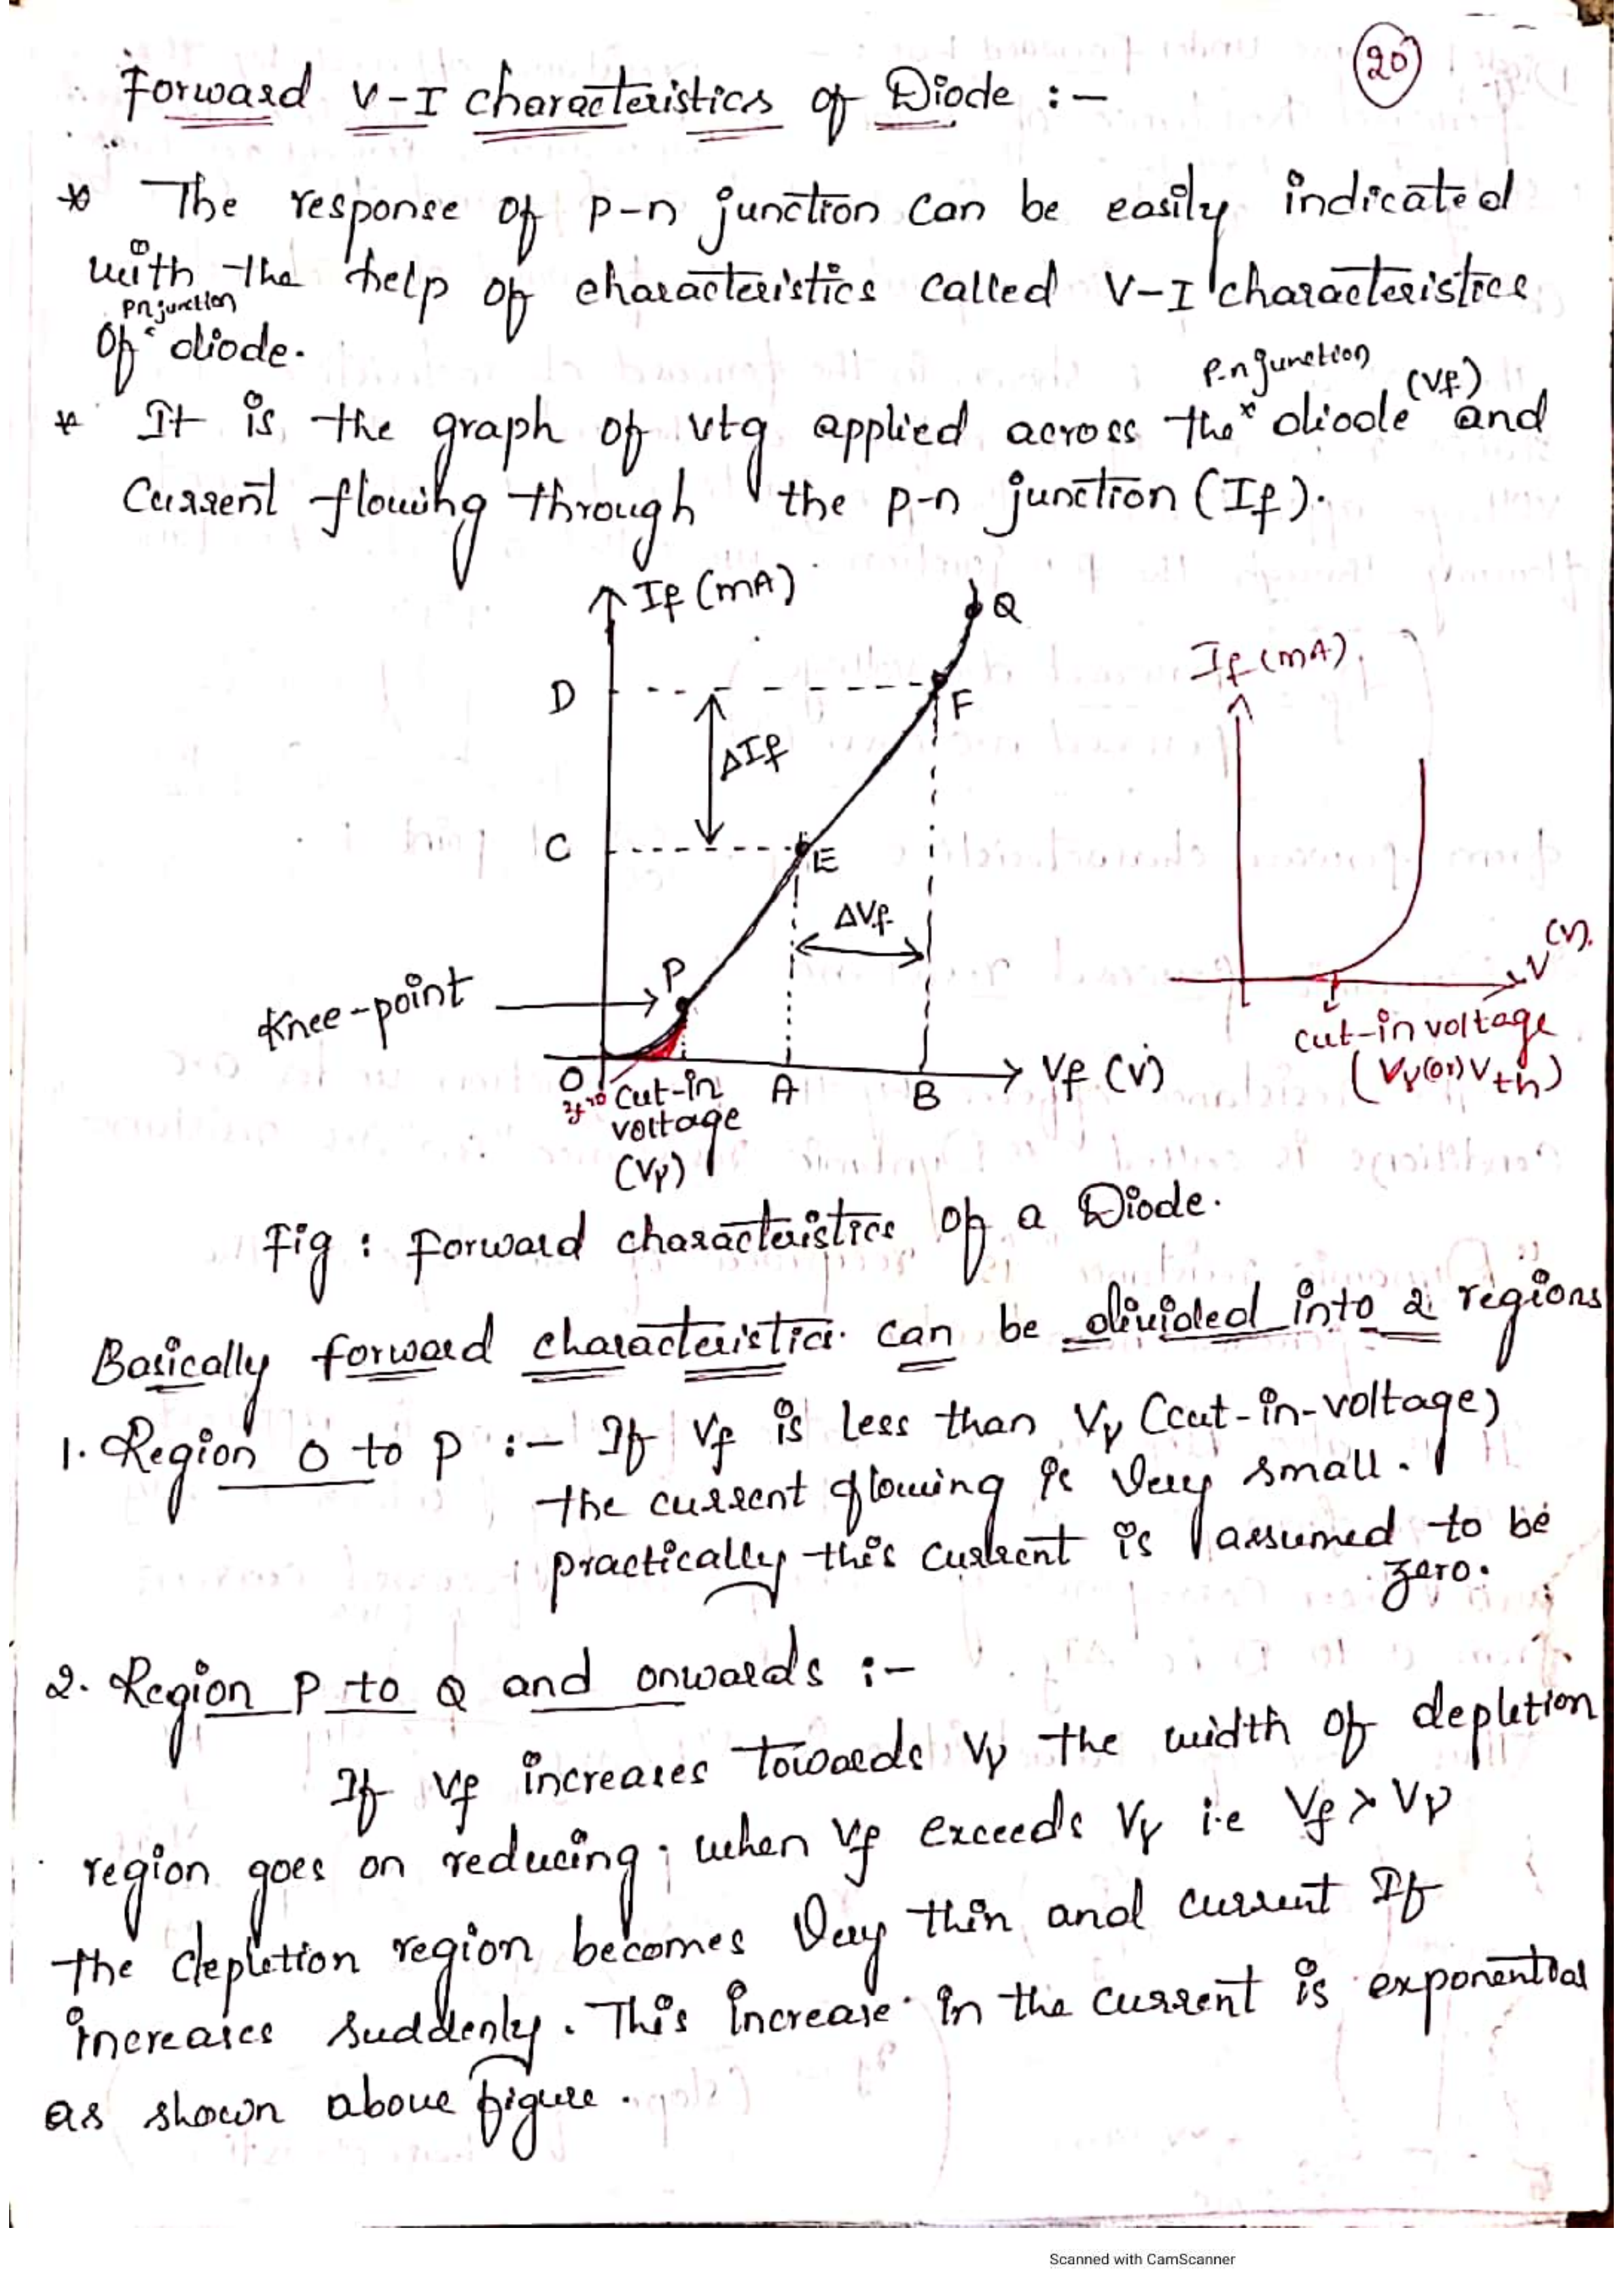 20
Forward V-I characteristics of Diode :-
* The response of p-n junction can be easily indicated
with the help of characteristics called V-I characteristics
pn junction
of diode.
p-n junction (Vf)
* It is the graph of vtg applied across the diode and
current flowing through the p-n junction (If).
If (mA)
Q
D
F
ΔIf
C
E
ΔVf
P
Knee-point
O
A
B
Vf (V)
Cut-in
voltage
(Vγ)
If (mA)
V (V).
cut-in voltage
(Vγ (or) Vth)
Fig : Forward characteristics of a Diode.
Basically forward characteristics can be divided into 2 regions
1. Region O to P :- If Vf is less than Vγ (cut-in-voltage)
the current flowing is very small.
practically this current is assumed to be
zero.
2. Region P to Q and onwards :-
If Vf increases towards Vγ the width of depletion
region goes on reducing. when Vf exceeds Vγ i.e Vf > Vγ
the depletion region becomes very thin and current If
increases suddenly. This increase in the current is exponential
as shown above figure.
Scanned with CamScanner